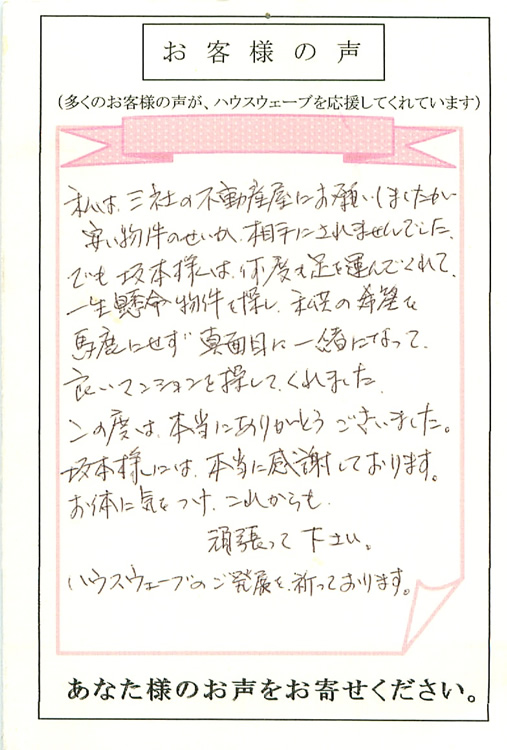 お客様の声
（多くのお客様の声が、ハウスウェーブを応援してくれています）
私は、三社の不動産屋にお願いしましたが
安い物件のせいか、相手にされませんでした。
でも坂本様は、何度も足を運んでくれて、
一生懸命物件を探し、私共の希望を
馬鹿にせず真面目に一緒になって、
良いマンションを探して、くれました。
この度は、本当にありがとうございました。
坂本様には、本当に感謝しております。
お体に気をつけ、これからも、
頑張って下さい。
ハウスウェーブのご発展を、祈っております。
あなた様のお声をお寄せください。